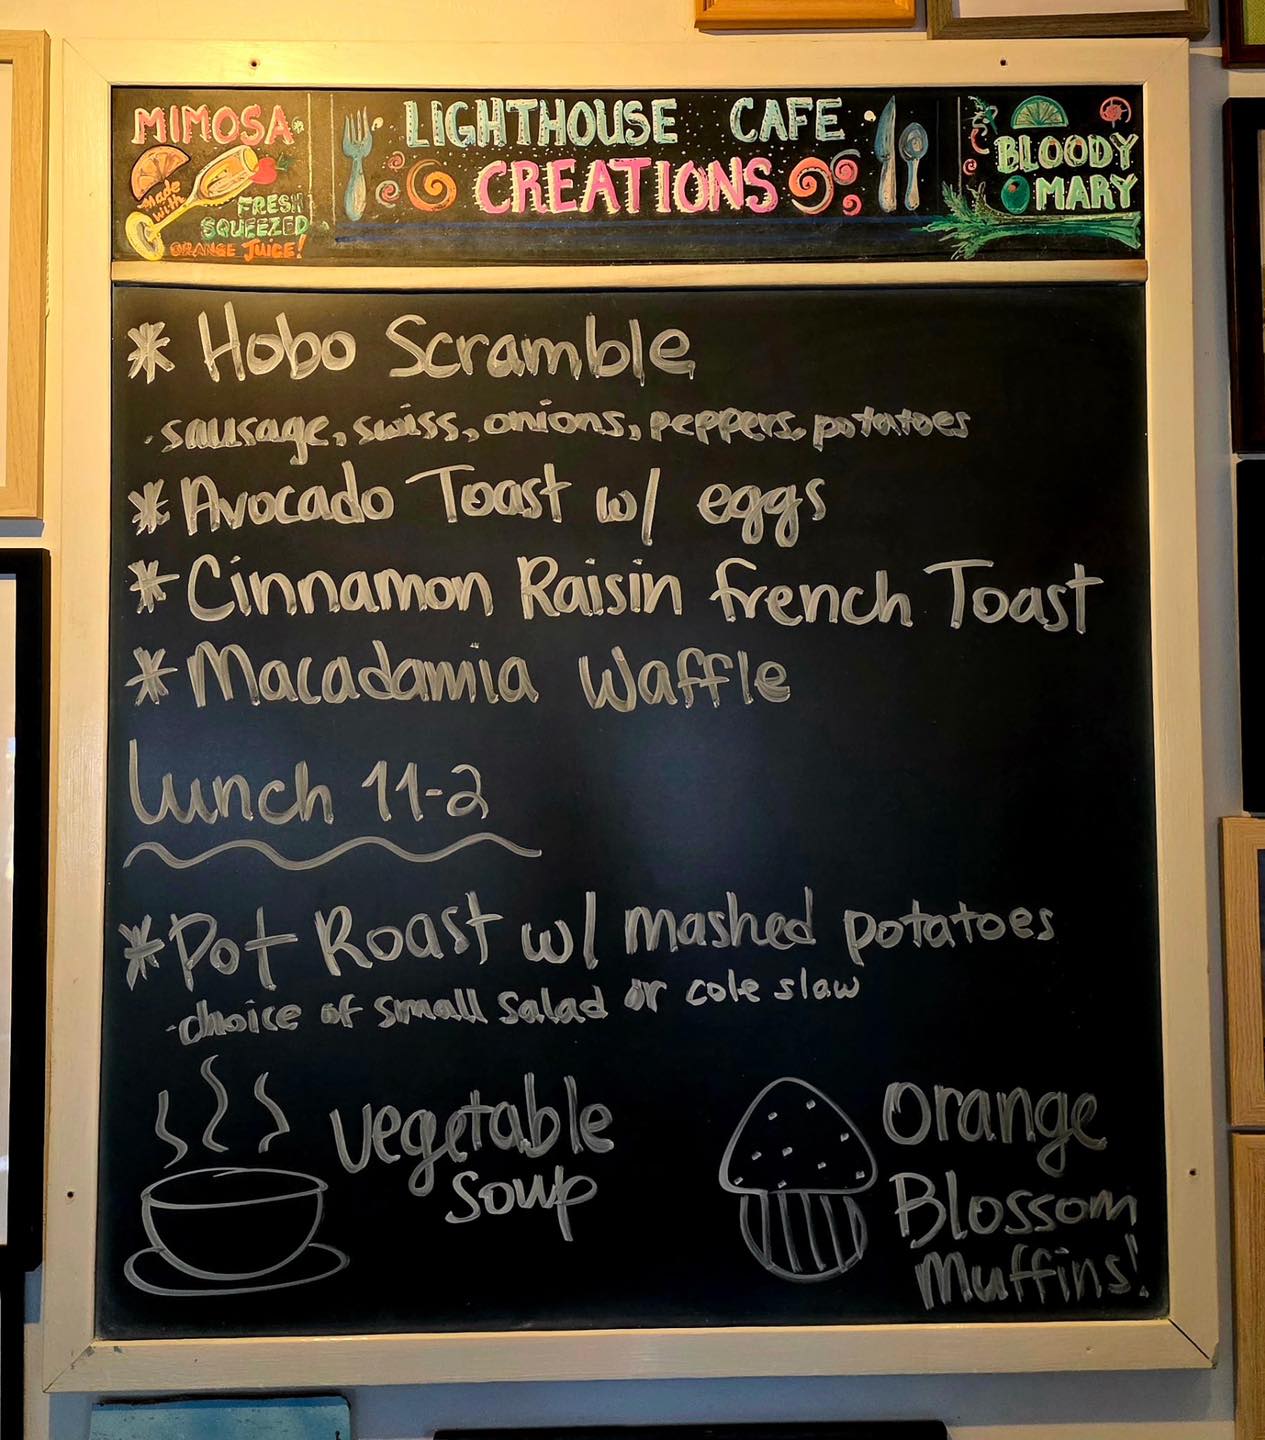 MIMOSA
made
with
FRESH
SQUEEZED
ORANGE JUICE!
LIGHTHOUSE CAFE
CREATIONS
BLOODY
MARY
* Hobo Scramble
· sausage, swiss, onions, peppers, potatoes
* Avocado Toast w/ eggs
* Cinnamon Raisin french Toast
* Macadamia Waffle
Lunch 11-2
* Pot Roast w/ mashed potatoes
· choice of small salad or cole slaw
vegetable
soup
Orange
Blossom
Muffins!